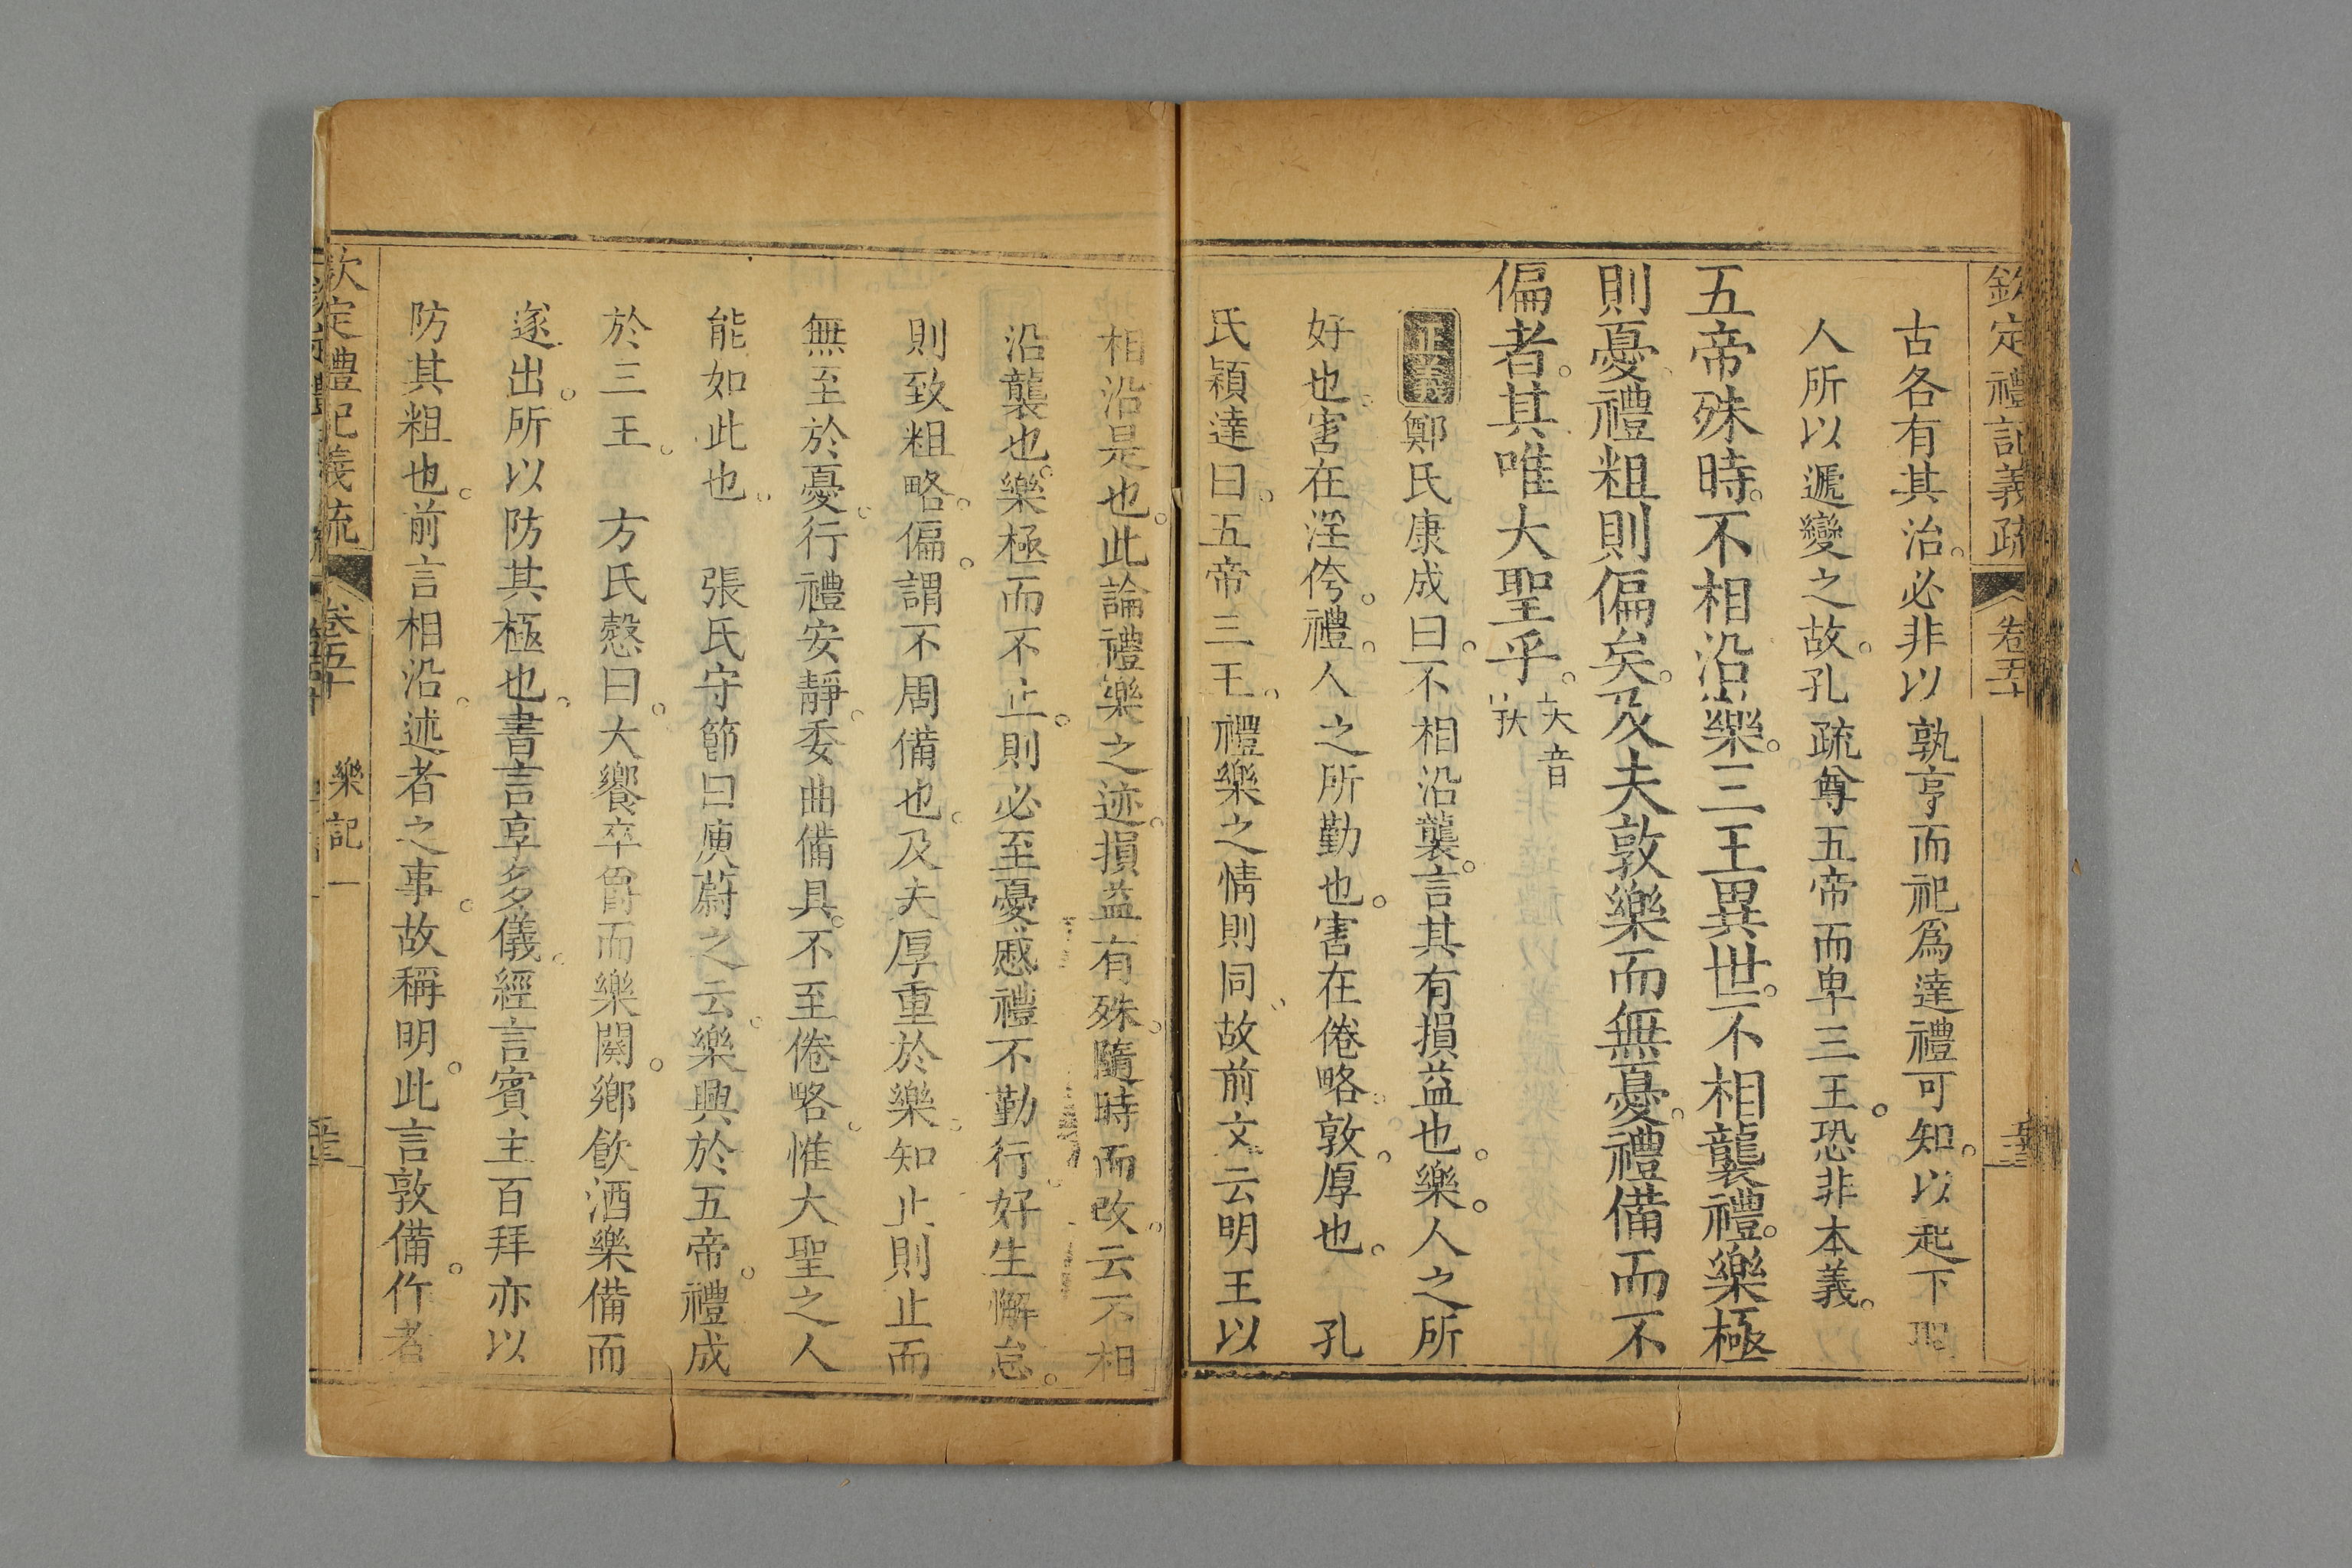 欽定禮記義疏 卷五十
古各有其治必非以孰亨而祀爲達禮可知以起下
人所以遞變之故孔疏尊五帝而卑三王恐非本義
五帝殊時不相沿樂三王異世不相襲禮樂極
則憂禮粗則偏矣及夫敦樂而無憂禮備而不
偏者其唯大聖乎 夫音扶
正義 鄭氏康成曰不相沿襲言其有損益也樂人之所
好也害在淫侉禮人之所勤也害在倦略敦厚也 孔
氏穎達曰五帝三王禮樂之情則同故前文云明王以
相沿是也此論禮樂之迹損益有殊隨時而改云不相
沿襲也樂極而不止則必至憂慼禮不勤行好生懈怠
則致粗略偏謂不周備也及夫厚重於樂知止則止而
無至於憂行禮安靜委曲備具不至倦略惟大聖之人
能如此也 張氏守節曰庾蔚之云樂興於五帝禮成
於三王 方氏慤曰大饗卒爵而樂闋鄉飲酒樂備而
遂出所以防其極也書言享多儀經言賓主百拜亦以
防其粗也前言相沿述者之事故稱明此言敦備作者
欽定禮記義疏 卷五十 樂記一